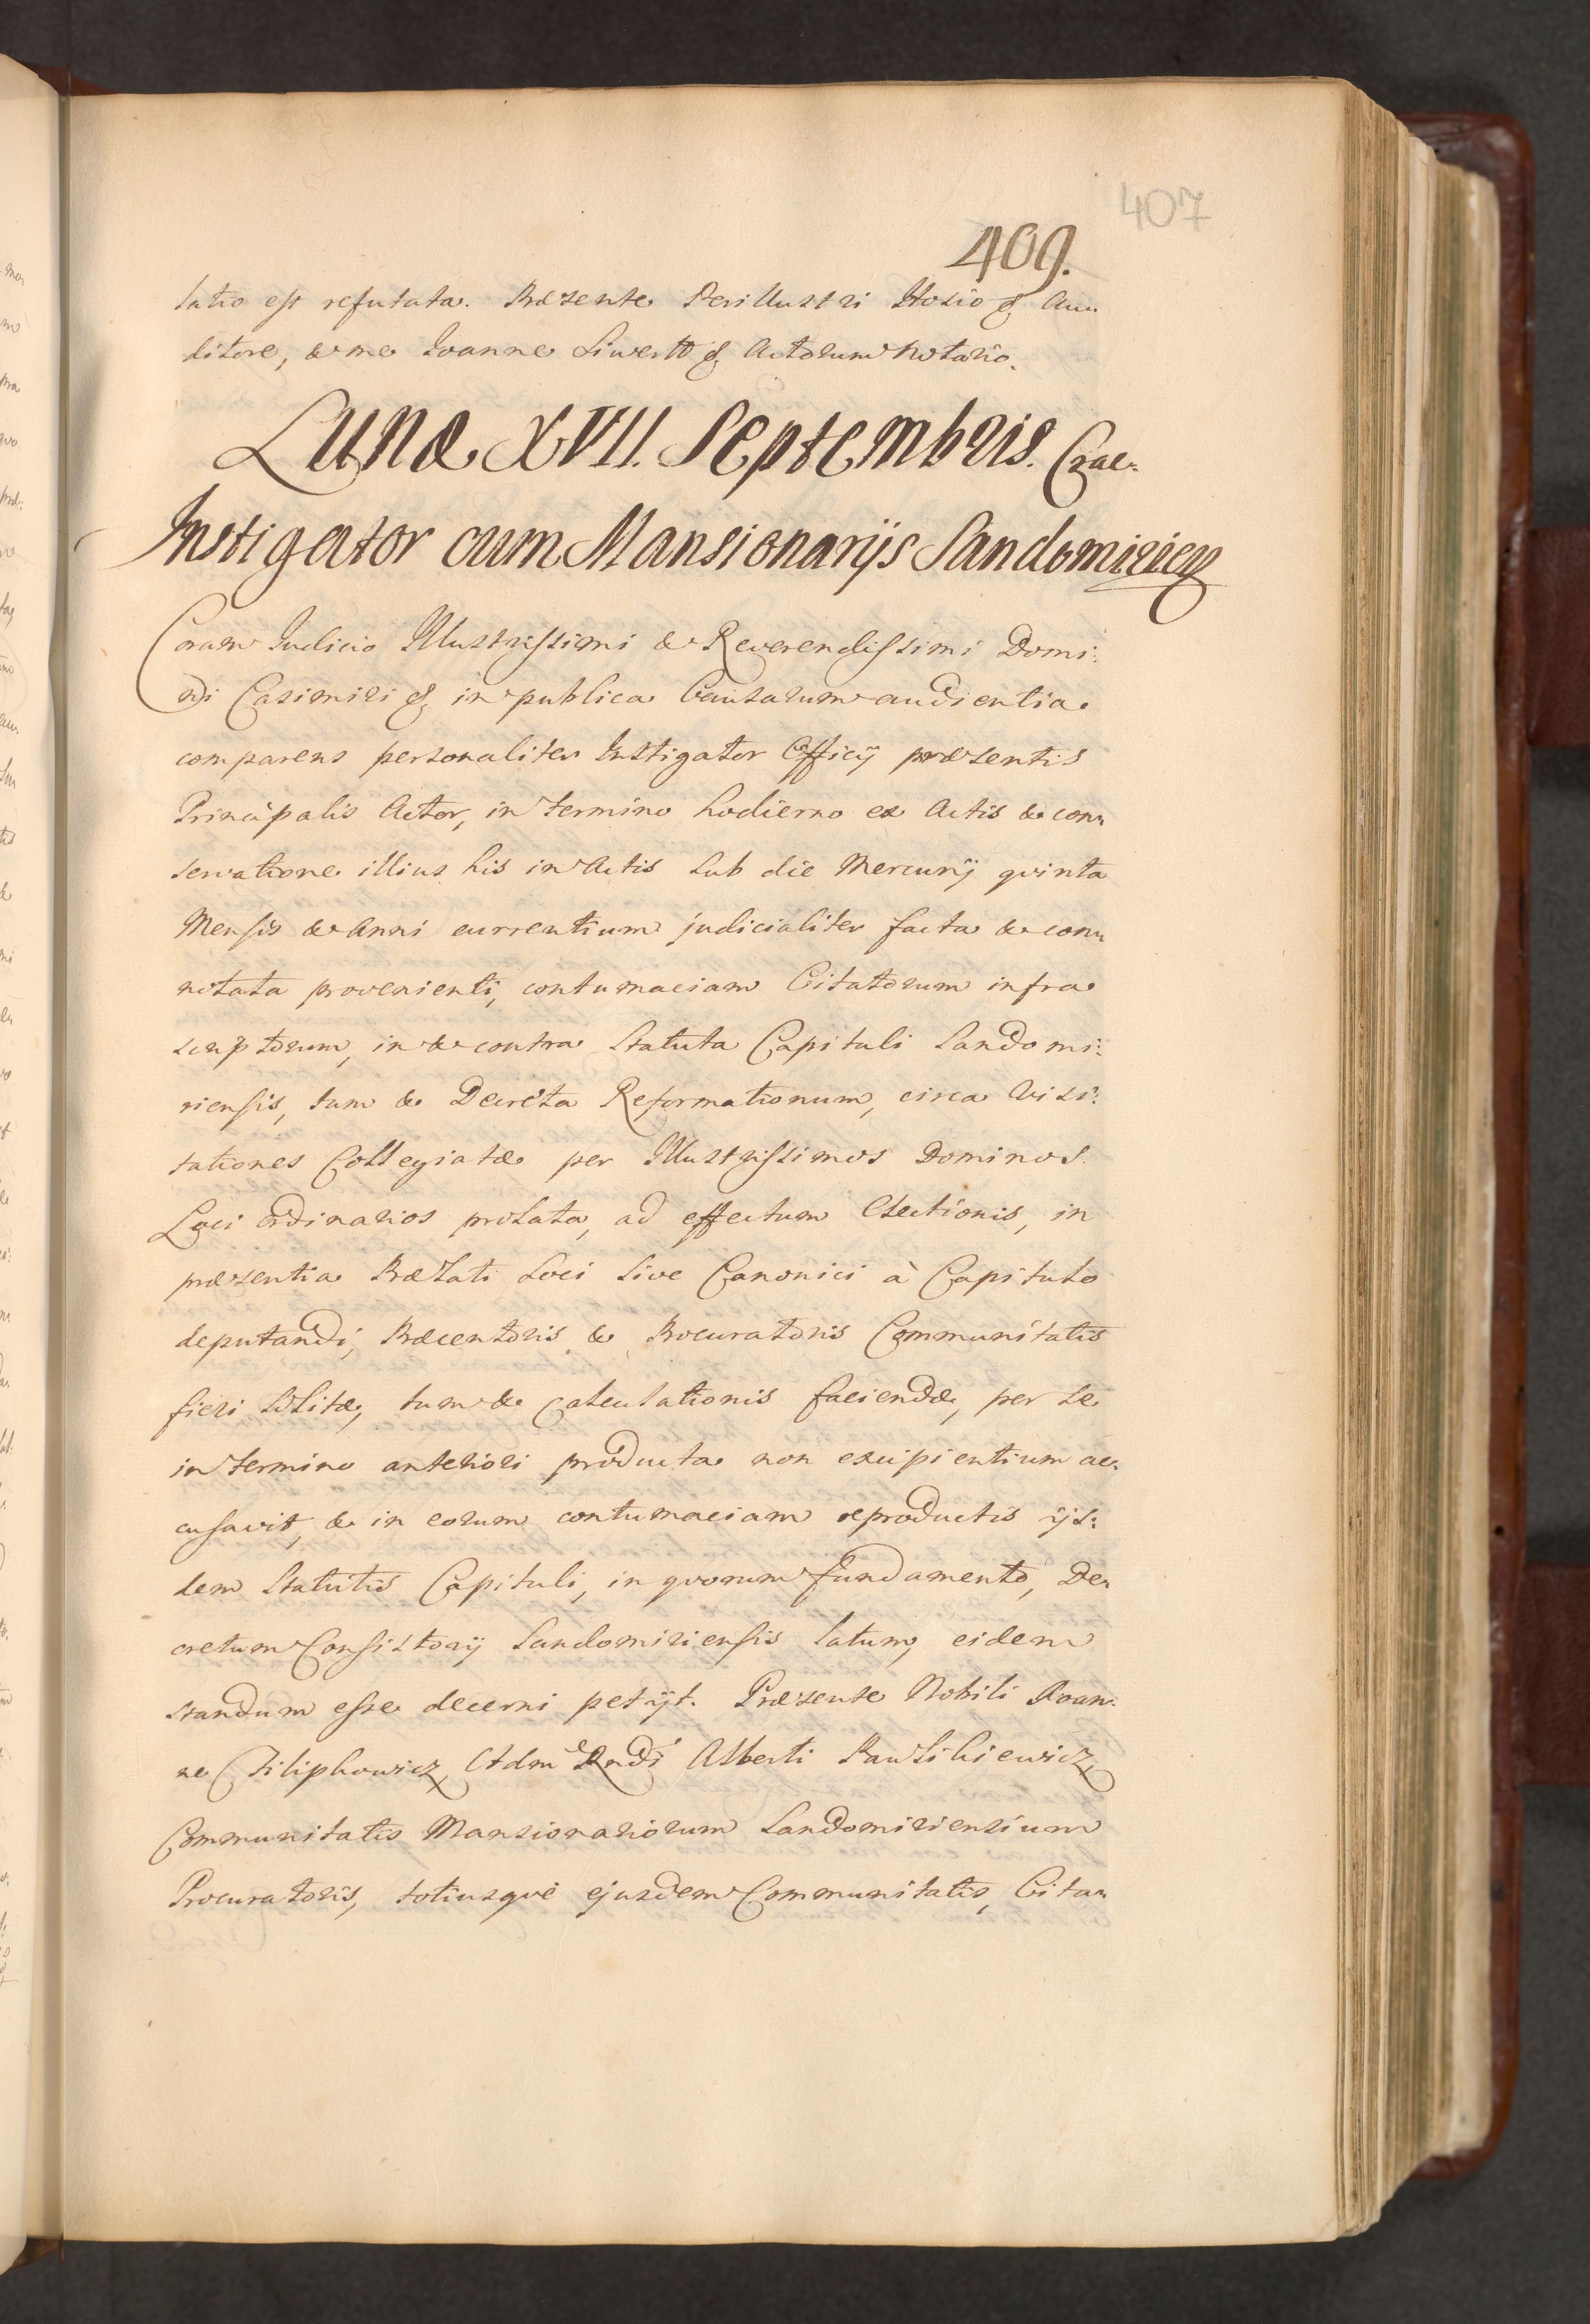 407
409.
latio est refutata. Præsente Perillustri Hosio & Au-
ditore, & me Joanne Siwertt & Actorum Notario.
Lunæ XVII. Septembris. Crac-
Instigator cum Mansionarijs Sandomirien
Coram Judicio Illustrissimi & Reverendissimi Domi:
ni Casimiri & in publica Causarum audientia
comparens personaliter Instigator Officij præsentis
Principalis Actor, in termino hodierno ex Actis & con-
servatione illius his in Actis sub die Mercurij quinta
Mensis & Anni currentium judicialiter facta & con-
notata provenienti, contumaciam Citatorum infra
scriptorum, in & contra Statuta Capituli Sandomi:
riensis, tum & Decreta Reformationum, circa Visi:
tationes Collegiatæ per Illustrissimos Dominos
Loci Ordinarios prolata, ad effectum Electionis, in
præsentia Prælati Loci sive Canonici à Capitulo
deputandi, Præcentoris & Procuratoris Communitatis
fieri solitæ, tum & Calculationis faciendæ, per se
in termino anteriori producta non excipientium ac-
cusavit, & in eorum contumaciam reproductis ijs:
dem Statutis Capituli, in quorum fundamento, De-
cretum Consistorij Sandomiriensis latum, eidem
standum esse decerni petijt. Præsente Nobili Joan-
ne Filiphowicz, Adm Rndi Alberti Pawlikiewicz
Communitatis Mansionariorum Sandomiriensium
Procuratoris, totiusque ejusdem Communitatis, Cita-